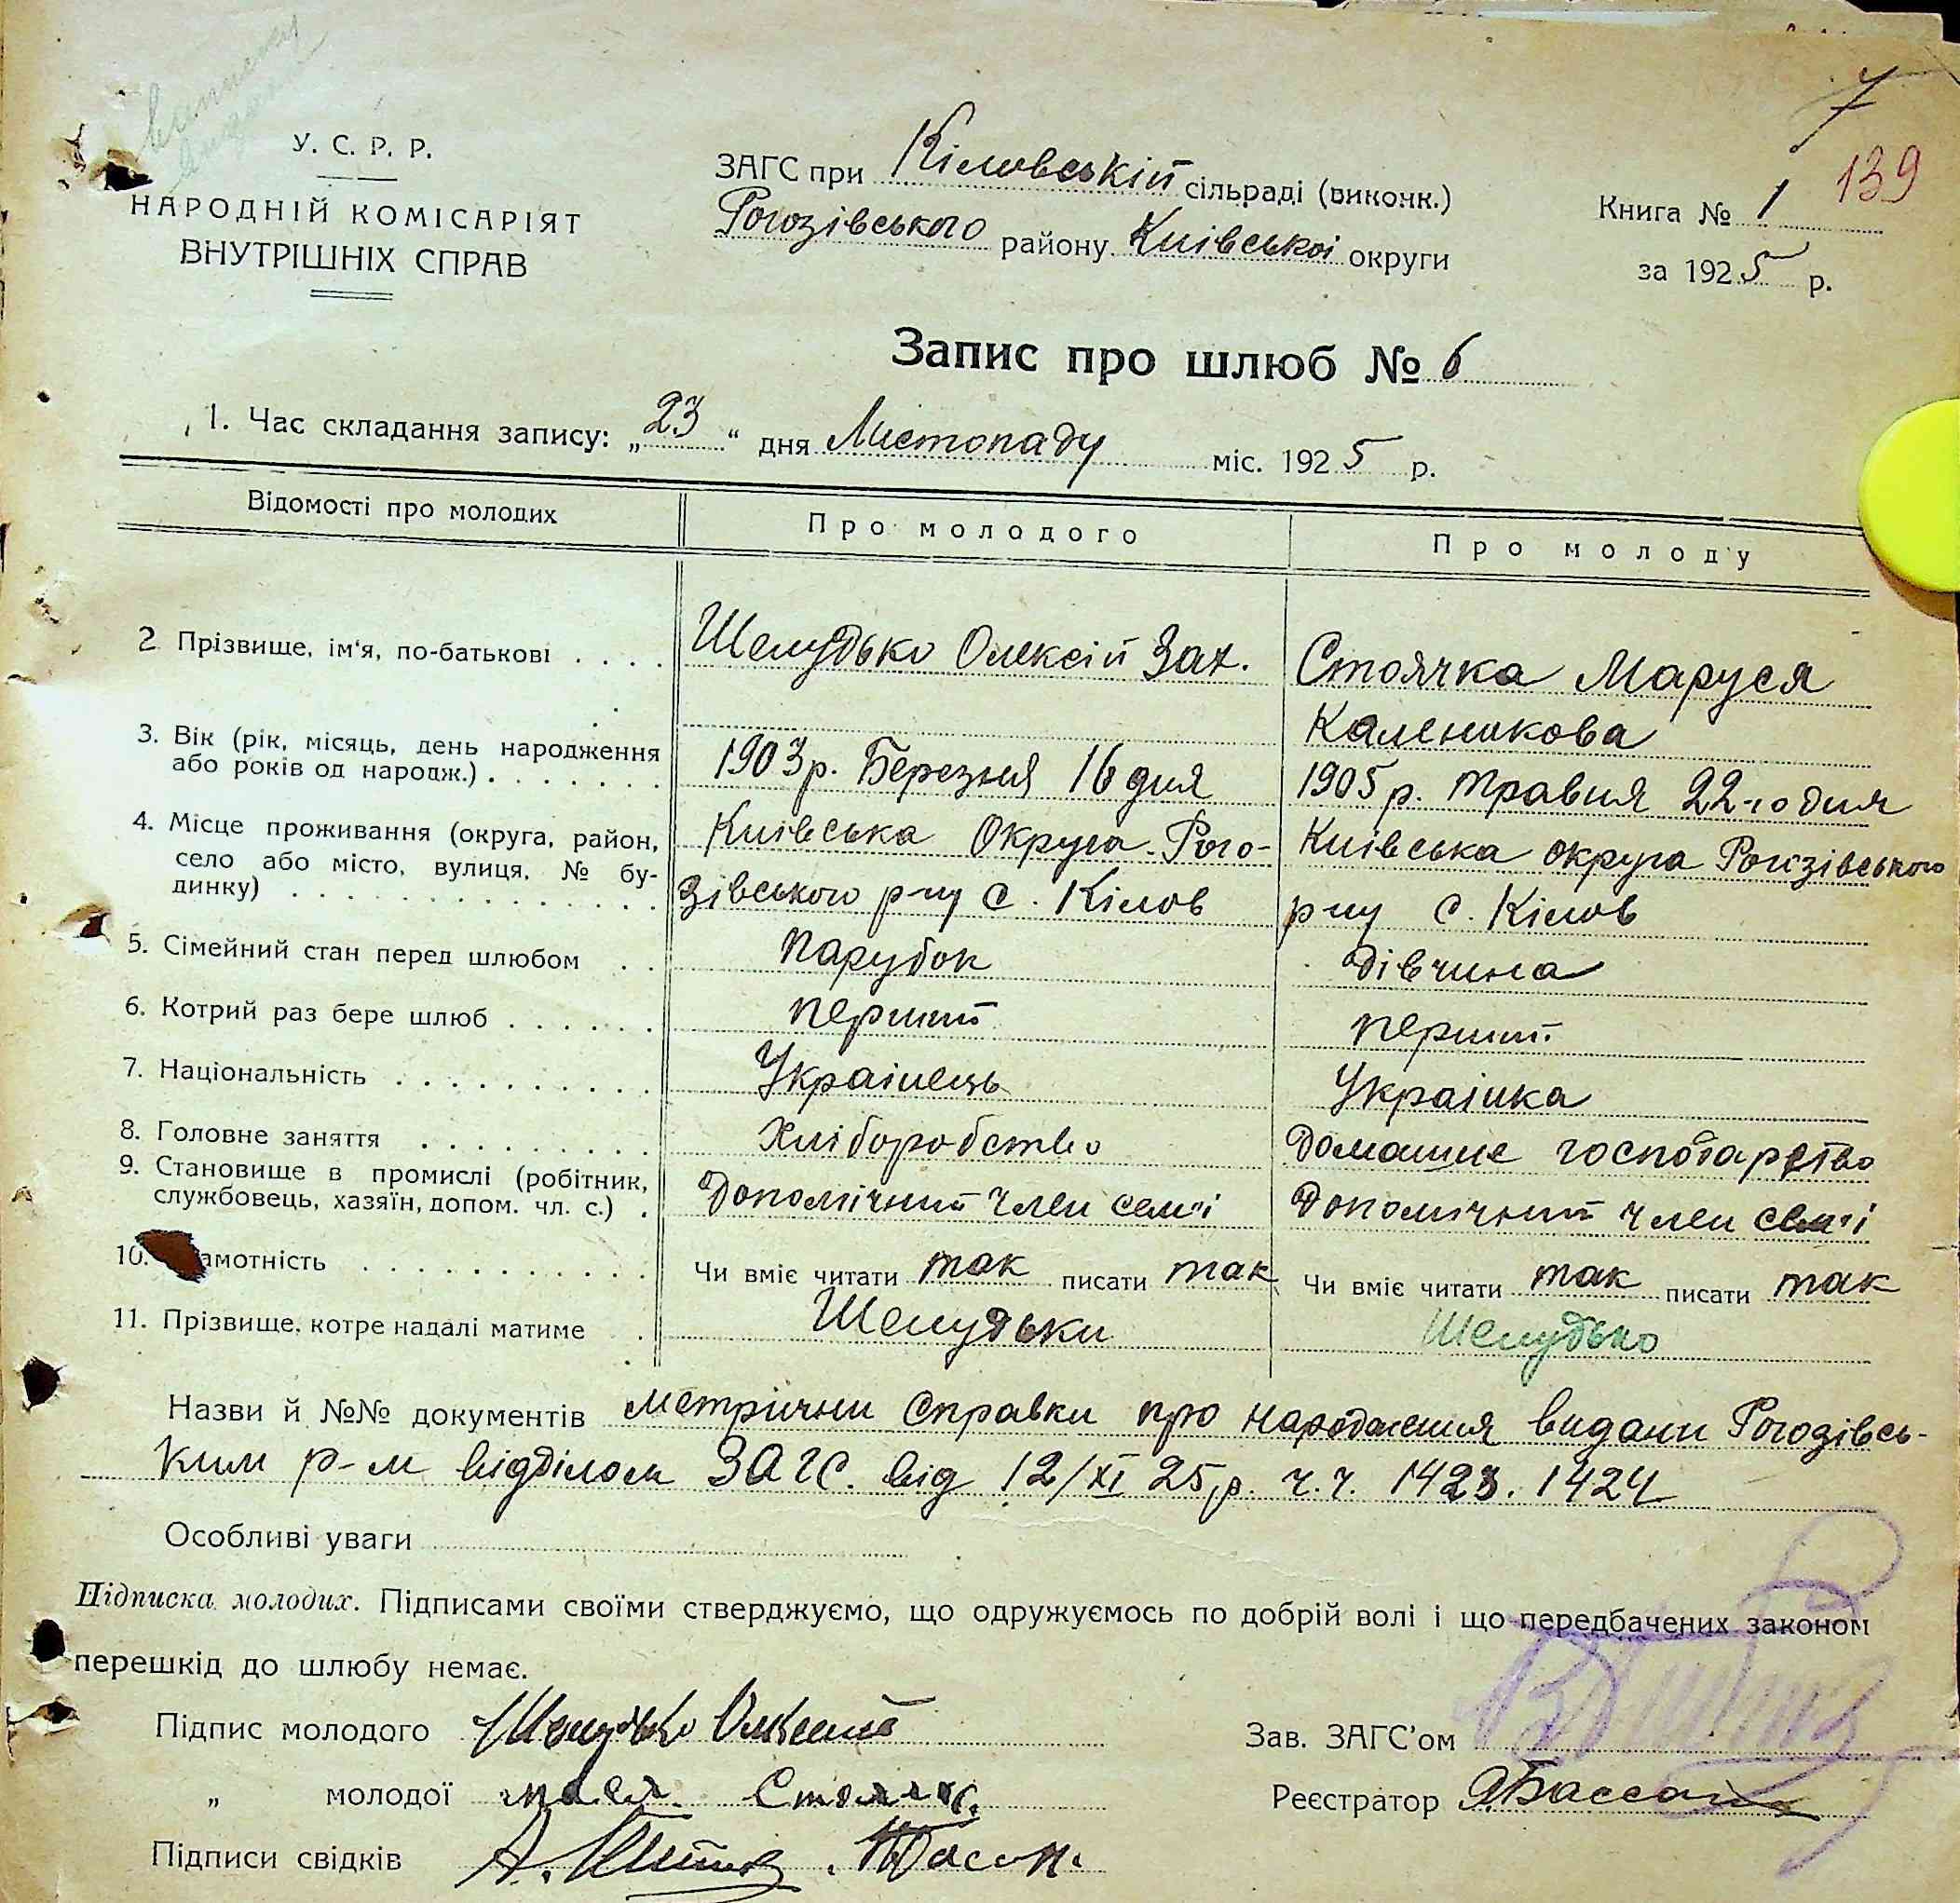 7
139
У. С. Р. Р.
НАРОДНІЙ КОМІСАРІЯТ
ВНУТРІШНІХ СПРАВ
ЗАГС при Кіловській сільраді (виконк.)
Рогозівського району Київської округи
Книга № 1
за 1925 р.
Запис про шлюб № 6
1. Час складання запису: „23“ дня Листопаду міс. 1925 р.
Відомості про молодих
Про молодого
Про молоду
2 Прізвище, ім'я, по-батькові . . . .
Шелудько Олексій Зах.
Стоячка Маруся
Каленикова
3. Вік (рік, місяць, день народження
або років од народж.) . . . . . .
1903 р. Березня 16 дня
1905 р. Травня 22-го дня
4. Місце проживання (округа, район,
село або місто, вулиця, № бу-
динку) . . . . . . . . . . . . . .
Київська Округа Рого-
зівського р-ну с. Кілов
Київська округа Рогозівського
р-ну с. Кілов
5. Сімейний стан перед шлюбом . .
парубок
дівчина
6. Котрий раз бере шлюб . . . . . .
перший
перший
7. Національність . . . . . . . . . .
Украінець
Украінка
8. Головне заняття . . . . . . . . .
Хліборобство
Домашнє господарство
9. Становище в промислі (робітник,
службовець, хазяїн, допом. чл. с.) .
Допомічний член семʼі
Допомічний член семʼі
10. амотність . . . . . . . . . . . .
Чи вміє читати так писати так
Чи вміє читати так писати так
11. Прізвище, котре надалі матиме .
Шелудьки
Шелудько
Назви й №№ документів метрични справки про народження видани Рогозівсь-
ким р-м відділом ЗАГС. від 12/XI 25 р. ч.ч. 1423. 1424
Особливі уваги
Підписка молодих. Підписами своїми стверджуємо, що одружуємось по добрій волі і що передбачених законом
перешкід до шлюбу немає.
Підпис молодого Шелудько Олексій
„ молодої
Підписи свідків
Зав. ЗАГС'ом
Реєстратор